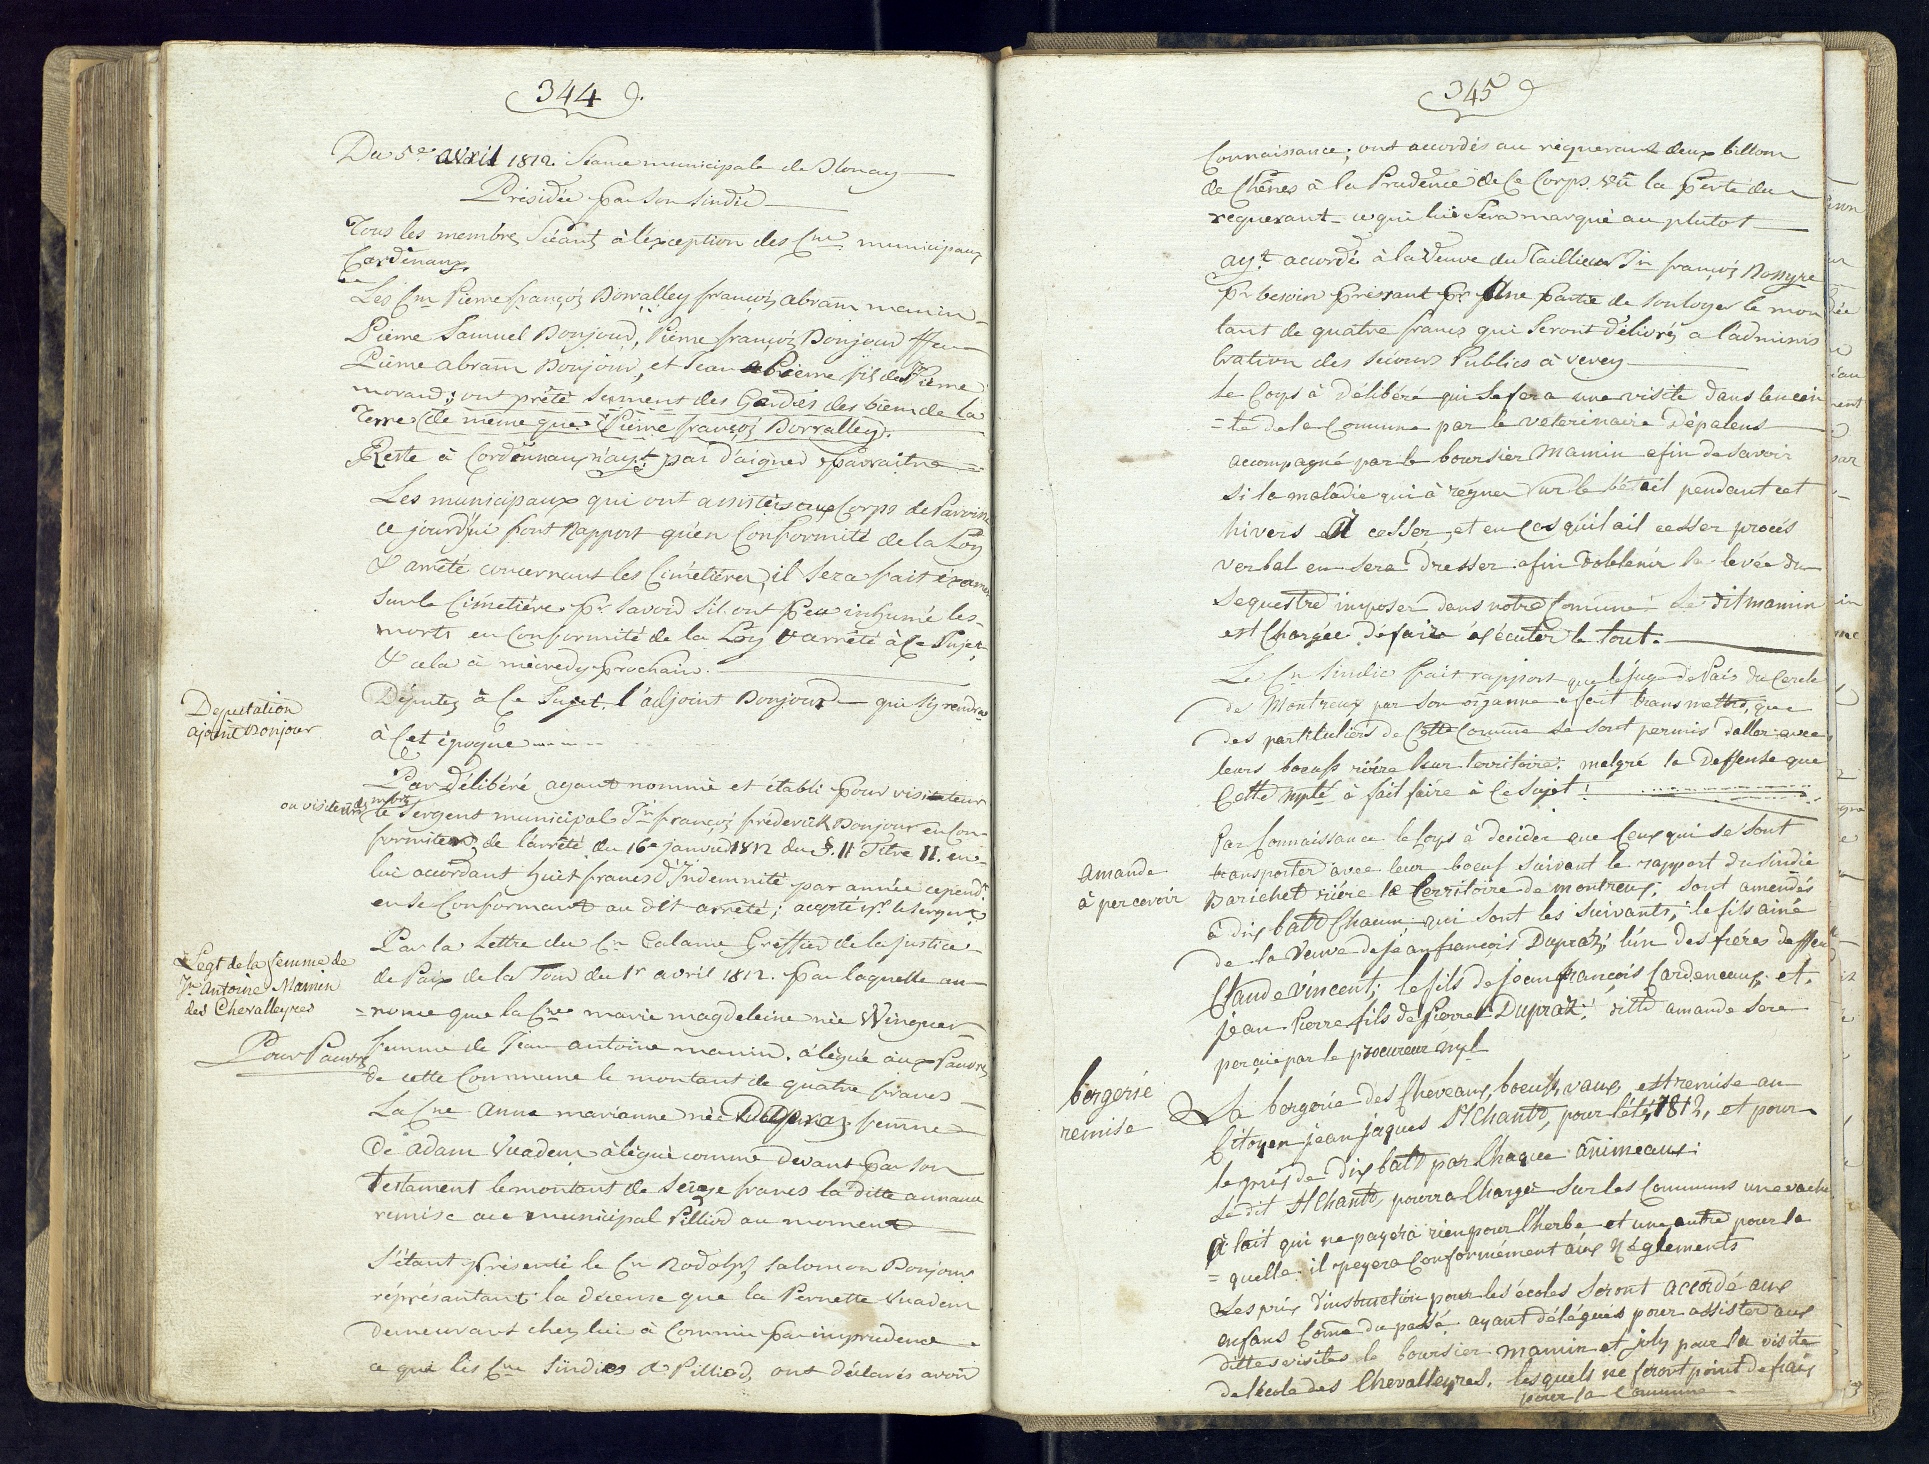 344
Du 5e avril 1812. Séance municipale de Blonay
Présidée par Son Sindic
Tous les membres Séants à l'exception des Cns municipaux
Cordenaux
Les Cns Pierre françois Borralley françois abram mamin
Pierre Samuel Bonjour, Pierre françois Bonjour ffeu
Pierre abram Bonjour, et Jean Pierre fils de Pierre
morard; ont prêté serment des Gardes des biens de la
Terre (de même que Pierre françois Borralley).
Reste à Cordennaux n'ayt pas d'aigner parraitre
Les municipaux qui ont assistés aux Corps de Parroisse
ce jourd'ui font Rapport qu'en Conformité de la Loy
& arrêté concernant les Cimetières, il sera fait éxamen
sur le Cimetière pr Savoir s'il ont peu inhumé les
morts en Conformité de la Loy & arrêté à Ce Sujet
& cela à mécredy prochain.
Députation
ajoint Bonjour
Députez à Ce Sujet. l'adjoint Bonjour qui s'y rendra
à Cet époque
Par Délibéré ayant nommé et établi pour visitateur
ou visiteur des
le Sergent municipal Jn françois fréderick Bonjour en Con-
formité de l'arrêté du 16e janvier 1812 du §. 11 Titre II. en
lui acordant huit francs d'Indemnité par année cepend.t
en se Conformant au dit arrêté; accepté pr le sergent
Légt de la femme de
Jn Antoine Mamin
des Chevalleyres
Pour Pauvres
Par la Lettre du Cn Calame Greffier de la justice
de Paix de la Tour du 1r avril 1812. par laquelle an-
=nonce que la Cne marie magdeleine née Winguer
femme de Jean antoine mamin. à légué aux Pauvres
de cette Commune le montant de quatre francs
La Cne anna marianne née Dupraz femme
de adam Vuadens à légué comme devant par son
Testament le montant de Seize francs la ditte annance
remise au municipal Pilliod au moment
S'étant présenté le Cn Rodolph Salomon Bonjour
réprésantant la déceuse que la Pernette Vuadens
demeurant chez lui à Commis par imprudence
ce que les Cns Sindics & Pilliod, ont déclarés avoir
345
Connaissance; ont accordés au réquerant deux billons
de Chênes à la Prudence de Ce Corps. vû la perte du
requerant ce qui lui Sera marqué au plutot
ayt accordé à la Veuve du Taillieur Jn françois Bossyre
pr besoin pressant pr Une partie de soulager le mon
tant de quatre francs qui Seront délivrés a l'adminis
tration des Secours Publics à vevey
Le Corps à Délibéré qui se fera une visite dans l'encein
=te de la Commune par le veterinaire Dépalens
accompagné par le boursier Mamin afin de savoir
si la maladie qui à régner sur le bétail pendant cet
hivers A cesser, et en cas qu'il ait cesser procés
verbal en sera dresser afin d'obtenir la levée du
sequestre imposer dans notre Comune Le dit mamin
est Chargée de faire éxécuter le tout.
Le Cn Sindic fait rapport que le juge de Paix du Cercle
de Montreux par son organne a fait transmettre, que
des partituliers de Cette Comune se sont permis d'aller avec
leurs boeufs riére leur territoire; malgré la Deffense que
Cette Mpté à fait faire à Ce Sujet!
Amande
à percevoir
Par Connaissance le Corps à décider que Ceux qui se sont
transporter avec leur boeuf suivant le rapport du Sindic
Barichet riére le territoire de montreux; sont amendés
à dix batz Chacun qui sont les suivants; le fils ainé
de la veuve de jean françois Dupraz; l'un des fréres deffeu
Claude Vincent; le fils de jean françois Cardeneaux; et.
jean Pierre fils de Pierre Dupraz; ditte amande sera
perçüe par le procureur Mpl
bergerie
remise
La bergerie des Cheveaux, boeufs, vaux, est remise au
Citoyen jean jaques StChantz, pour l'été 1812, et pour
le prix de dix batz par Chaque animeaux:
Le dit StChantz, pourra Charger sur les Communs une vache
à lait qui ne payera rien pour l'herbe et une autre pour la
=quelle il payera Conformément aux Réglements
Les prix d'instruction pour les écoles Seront accordé aux
enfans Come du passé ayant délégués pour assister aux
dittes visites le boursier mamin et joly pour la visite
de l'école des Chevalleyres. lesquels ne feront point de frais
pour la Commune